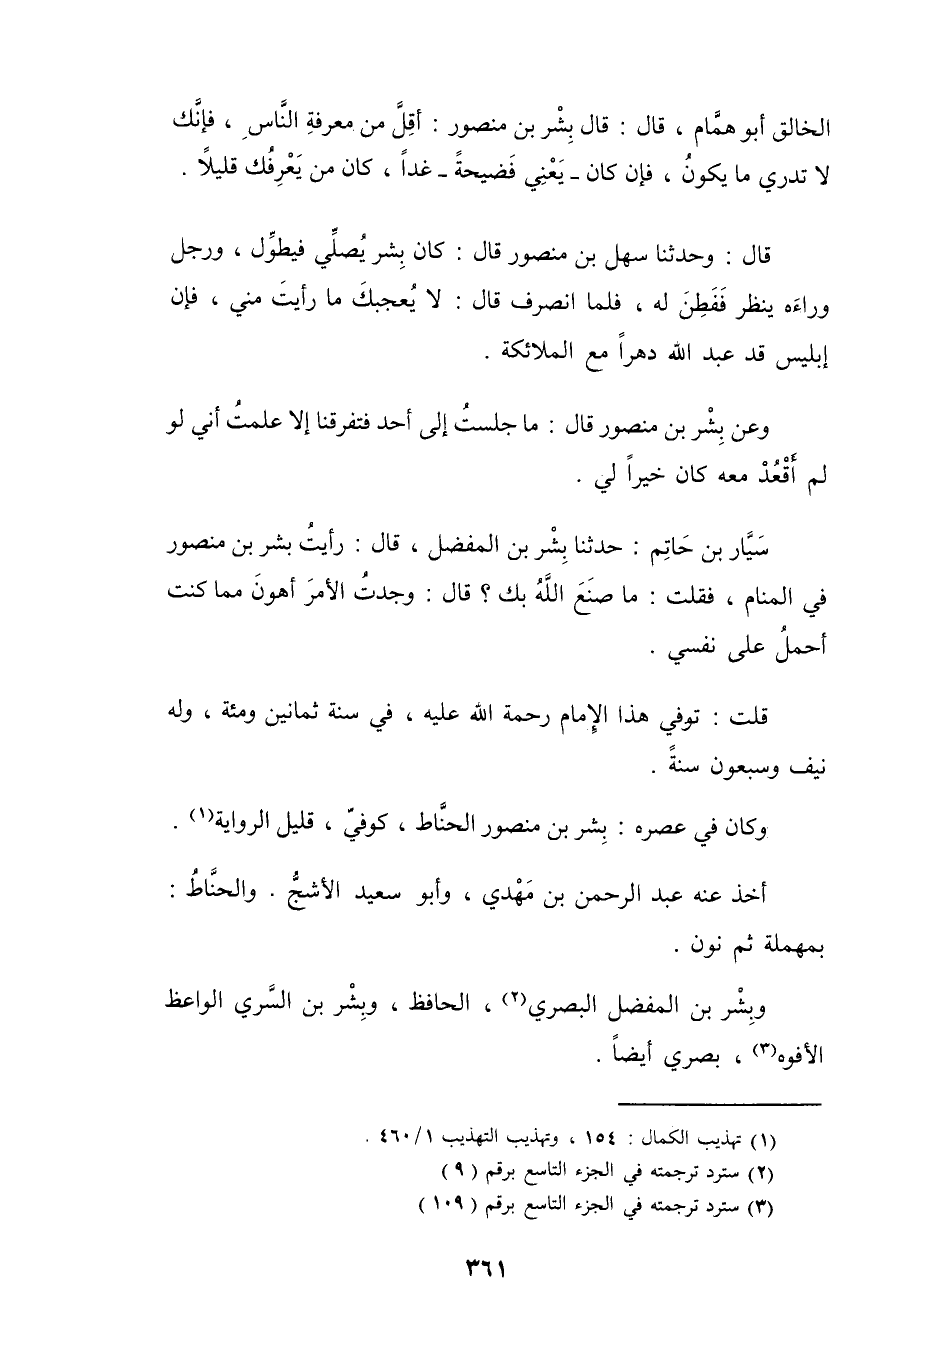 الخالق أبو همَّام ، قال : قال بِشْر بن منصور : أقِلَّ من معرفةِ النَّاسِ ، فإنَّك
لا تدري ما يكونُ ، فإن كان ـ يَعْنِي فَضيحةً ـ غداً ، كان من يَعْرِفُك قليلًا .
قال : وحدثنا سهل بن منصور قال : كان بِشر يُصلِّي فيطوِّل ، ورجل
وراءَه ينظر فَفَطِنَ له ، فلما انصرف قال : لا يُعجبكَ ما رأيتَ مني ، فإن
إبليس قد عبد الله دهراً مع الملائكة .
وعن بِشْر بن منصور قال : ما جلستُ إلى أحد فتفرقنا إلا علمتُ أني لو
لم أَقْعُدْ معه كان خيراً لي .
سَيَّار بن حَاتِم : حدثنا بِشْر بن المفضل ، قال : رأيتُ بشر بن منصور
في المنام ، فقلت : ما صنَعَ اللَّهُ بك ؟ قال : وجدتُ الأمرَ أهونَ مما كنت
أحملُ على نفسي .
قلت : توفي هذا الإِمام رحمة الله عليه ، في سنة ثمانين ومئة ، وله
نيف وسبعون سنةً .
وكان في عصره : بِشر بن منصور الحنَّاط ، كوفيّ ، قليل الرواية(١) .
أخذ عنه عبد الرحمن بن مَهْدي ، وأبو سعيد الأشجُّ . والحنَّاطُ :
بمهملة ثم نون .
وبِشْر بن المفضل البصري(٢) ، الحافظ ، وبِشْر بن السَّري الواعظ
الأفوه(٣) ، بصري أيضاً .
(١) تهذيب الكمال : ١٥٤ ، وتهذيب التهذيب ٤٦٠/١ .
(٢) سترد ترجمته في الجزء التاسع برقم ( ٩ )
(٣) سترد ترجمته في الجزء التاسع برقم ( ١٠٩ )
٣٦١